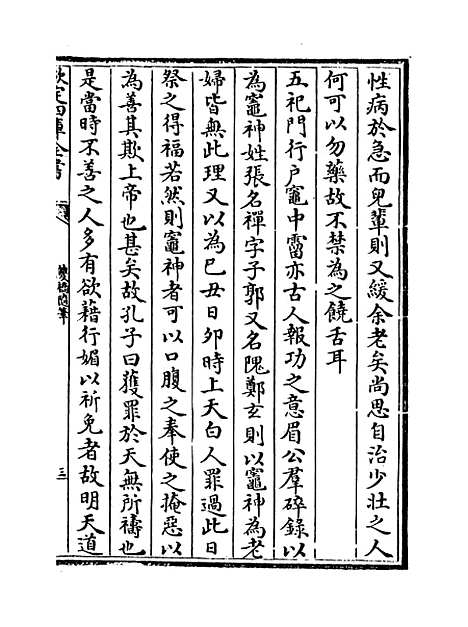 性病於急而兒輩則又緩余老矣尚思自治少壯之人
何可以勿藥故不禁為之饒舌耳
五祀門行户竈中霤亦古人報功之意眉公羣碎錄以
為竈神姓張名禪字子郭又名隗鄭玄則以竈神為老
婦皆無此理又以為巳丑日卯時上天白人罪過此日
祭之得福若然則竈神者可以口腹之奉使之掩惡以
為善其欺上帝也甚矣故孔子曰獲罪於天無所禱也
是當時不善之人多有欲藉行媚以祈免者故明天道
欽定四庫全書
雙橋隨筆
三